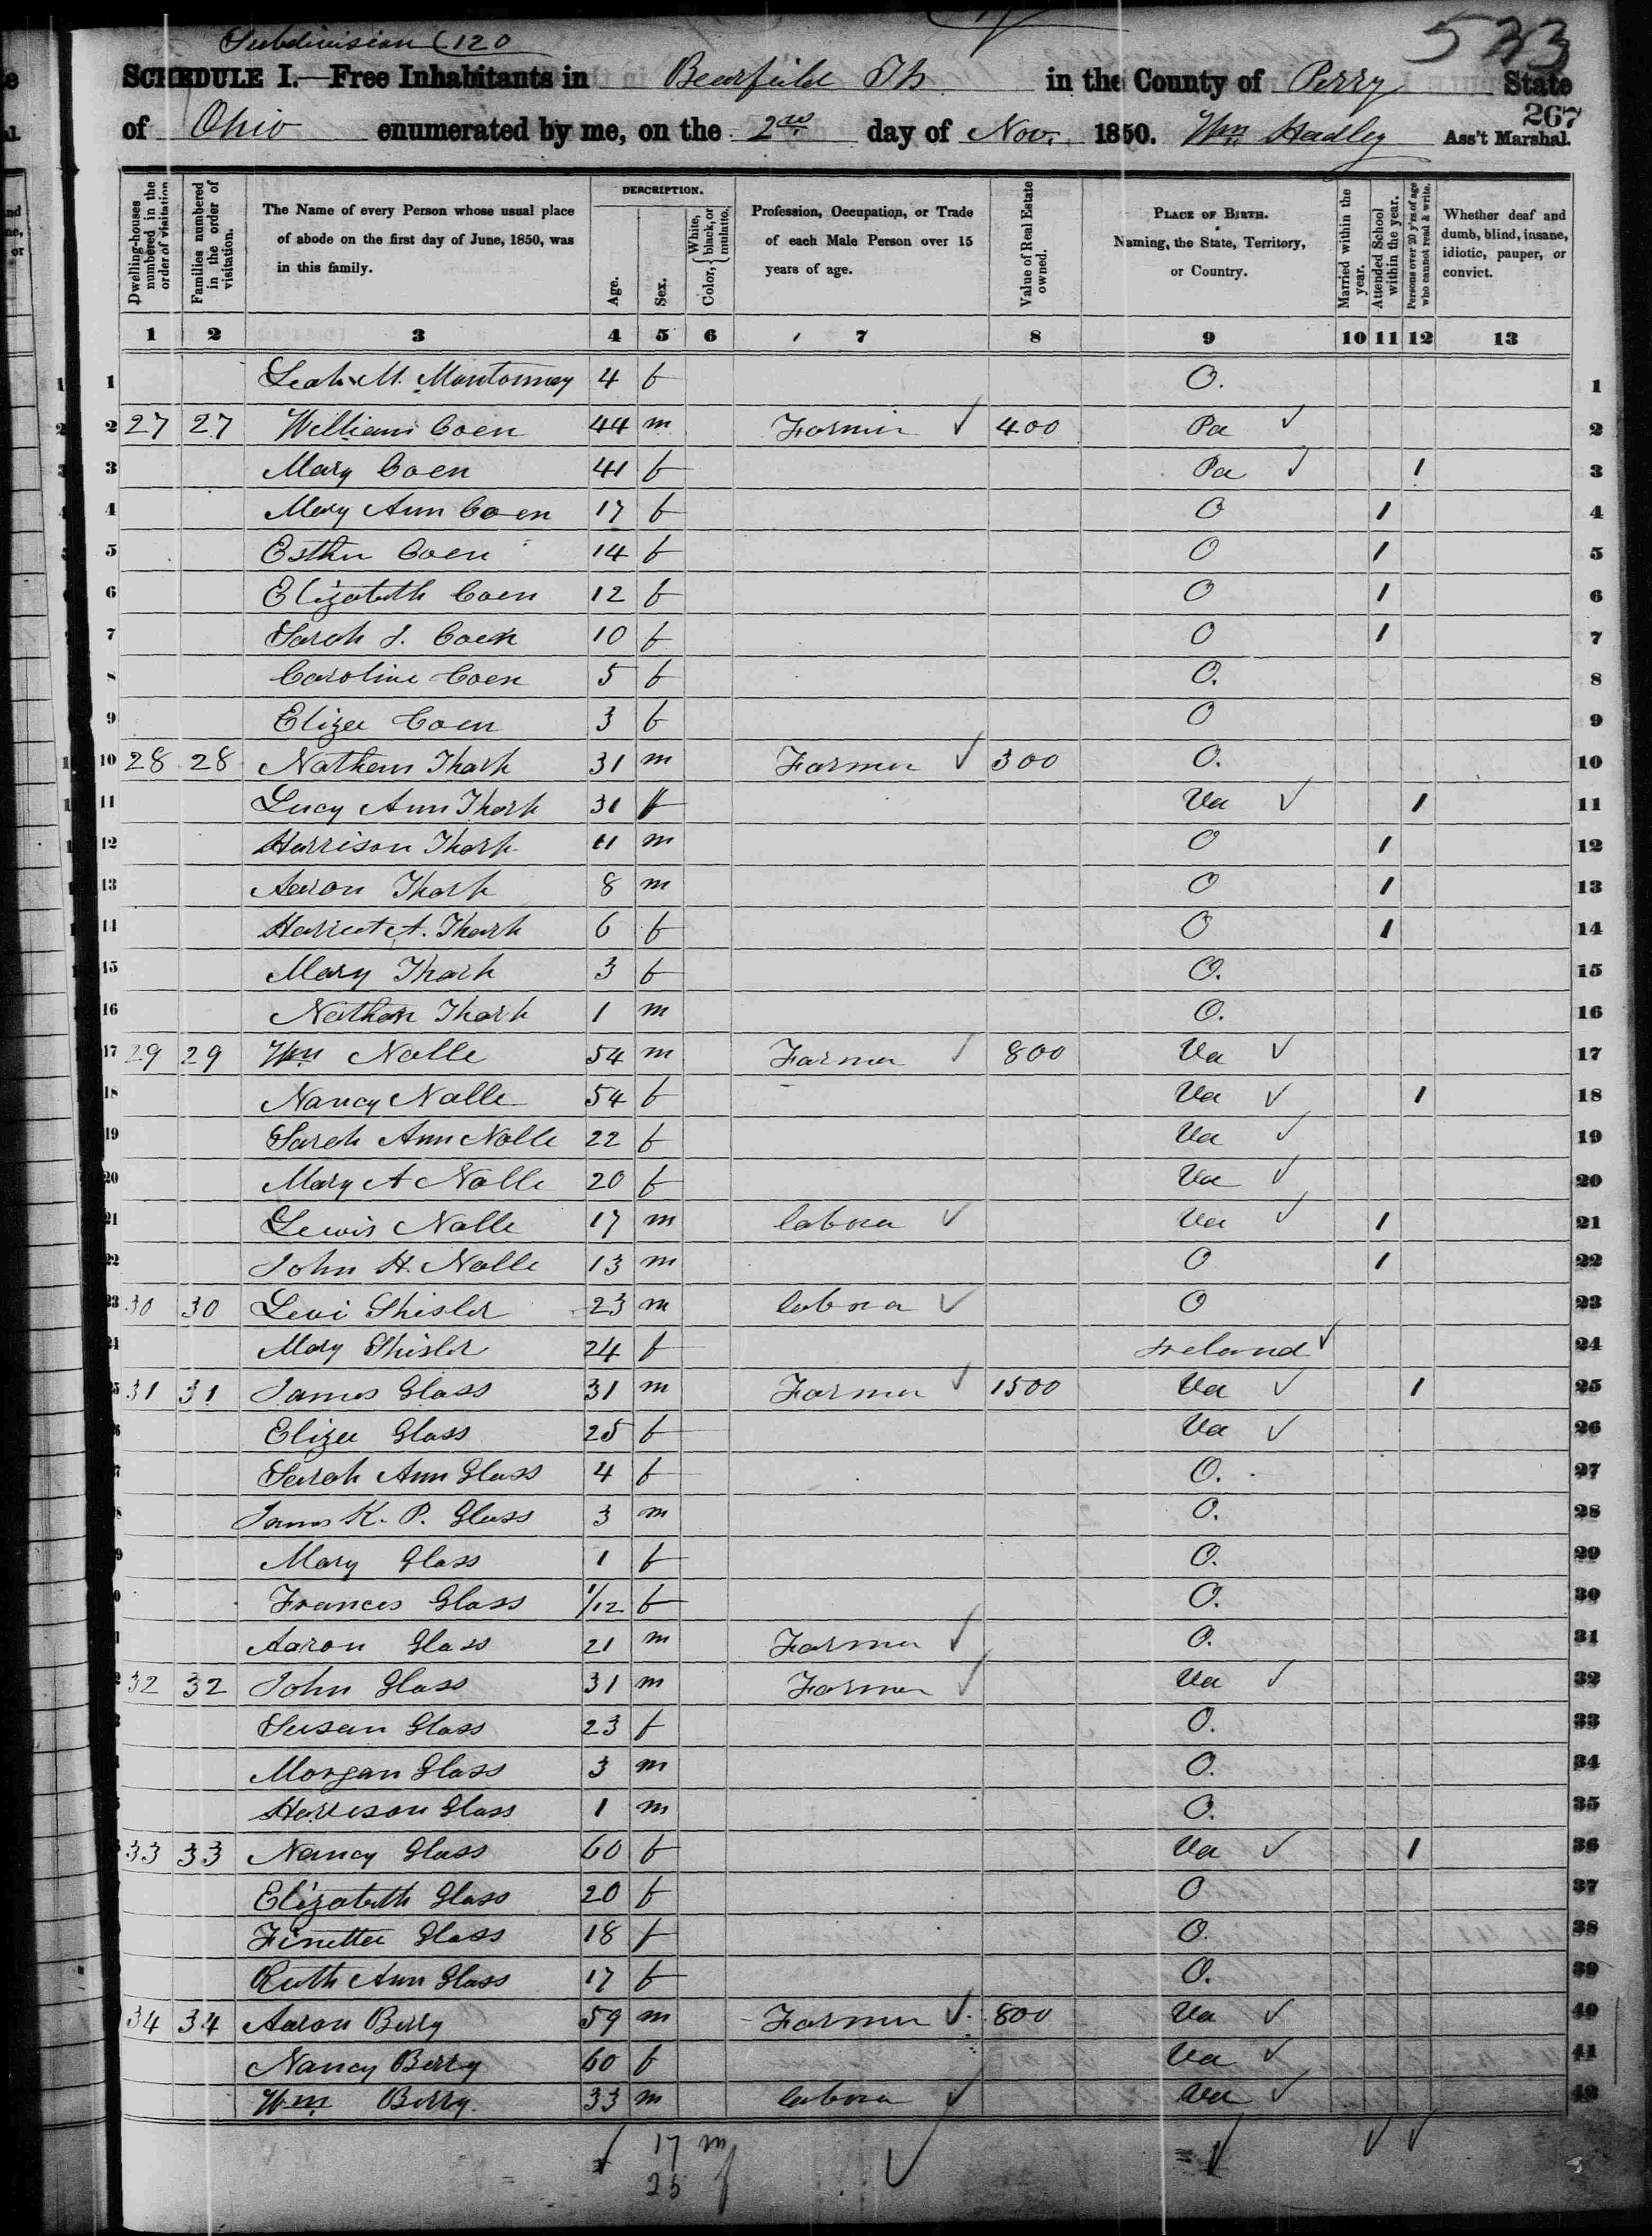 Subdivision (120
533
SCHEDULE I.—Free Inhabitants in Bearfield Tp in the County of Perry State
267
of Ohio enumerated by me, on the 2nd day of Nov. 1850. Wm Hadley Ass't Marshal.
Dwelling-houses numbered in the order of visitation.
Families numbered in the order of visitation.
The Name of every Person whose usual place of abode on the first day of June, 1850, was in this family.
DESCRIPTION.
Age.
Sex.
Color, { White, black, or mulatto.
Profession, Occupation, or Trade of each Male Person over 15 years of age.
Value of Real Estate owned.
PLACE OF BIRTH. Naming, the State, Territory, or Country.
Married within the year.
Attended School within the year.
Persons over 20 y'rs of age who cannot read & write.
Whether deaf and dumb, blind, insane, idiotic, pauper, or convict.
1 2 3 4 5 6 7 8 9 10 11 12 13
1 Leah M. Montonney 4 f O. 1
2 27 27 William Coen 44 m Farmin ✓ 400 Pa ✓ 2
3 Mary Coen 41 f Pa ✓ 1 3
4 Mary Ann Coen 17 f O 1 4
5 Esther Coen 14 f O 1 5
6 Elizabeth Coen 12 f O 1 6
7 Sarah J. Coen 10 f O 1 7
8 Caroline Coen 5 f O. 8
9 Eliza Coen 3 f O 9
10 28 28 Nathan Tharp 31 m Farmer ✓ 300 O. 10
11 Lucy Ann Tharp 31 f Va ✓ 1 11
12 Harrison Tharp 11 m O 1 12
13 Aaron Tharp 8 m O 1 13
14 Harriet A. Tharp 6 f O 1 14
15 Mary Tharp 3 f O. 15
16 Nathan Tharp 1 m O. 16
17 29 29 Wm Nalle 54 m Farmer ✓ 800 Va ✓ 17
18 Nancy Nalle 54 f Va ✓ 1 18
19 Sarah Ann Nalle 22 f Va ✓ 19
20 Mary A Nalle 20 f Va ✓ 20
21 Lewis Nalle 17 m labora ✓ Va ✓ 1 21
22 John H. Nalle 13 m O 1 22
23 30 30 Levi Shisler 23 m labora ✓ O 23
24 Mary Shisler 24 f Ireland ✓ 24
25 31 31 James Glass 31 m Farmer ✓ 1500 Va ✓ 1 25
Eliza Glass 25 f Va ✓ 26
Sarah Ann Glass 4 f O. 27
James K. P. Glass 3 m O. 28
Mary Glass 1 f O. 29
Frances Glass 1/12 f O. 30
Aaron Glass 21 m Farmer ✓ O. 31
32 32 John Glass 31 m Farmer ✓ Va ✓ 32
Susan Glass 23 f O. 33
Morgan Glass 3 m O. 34
Harrison Glass 1 m O. 35
33 33 Nancy Glass 60 f Va ✓ 1 36
Elizabeth Glass 20 f O 37
Finetta Glass 18 f O. 38
Ruth Ann Glass 17 f O. 39
34 34 Aaron Berry 59 m Farmer ✓ 800 Va ✓ 40
Nancy Berry 60 f Va ✓ 41
Wm Berry 33 m labora ✓ Va ✓ 42
✓ 17 m ✓ ✓ ✓ ✓
25 f